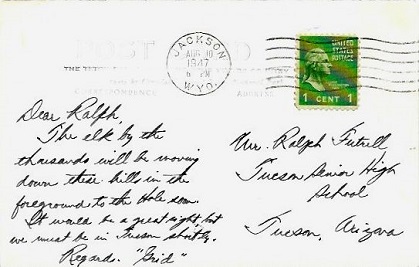 POST CARD
JACKSON
AUG 10
1947
6 PM
WYO.
UNITED
STATES
POSTAGE
1 CENT 1
CORRESPONDENCE
ADDRESS
Dear Ralph,
The elk by the
thousands will be moving
down these hills in the
foreground to the Hole soon.
It would be a great sight, but
we must be in Tucson shortly.
Regards. "Grid"
Mr. Ralph Futrell
Tucson Senior High
School
Tucson, Arizona